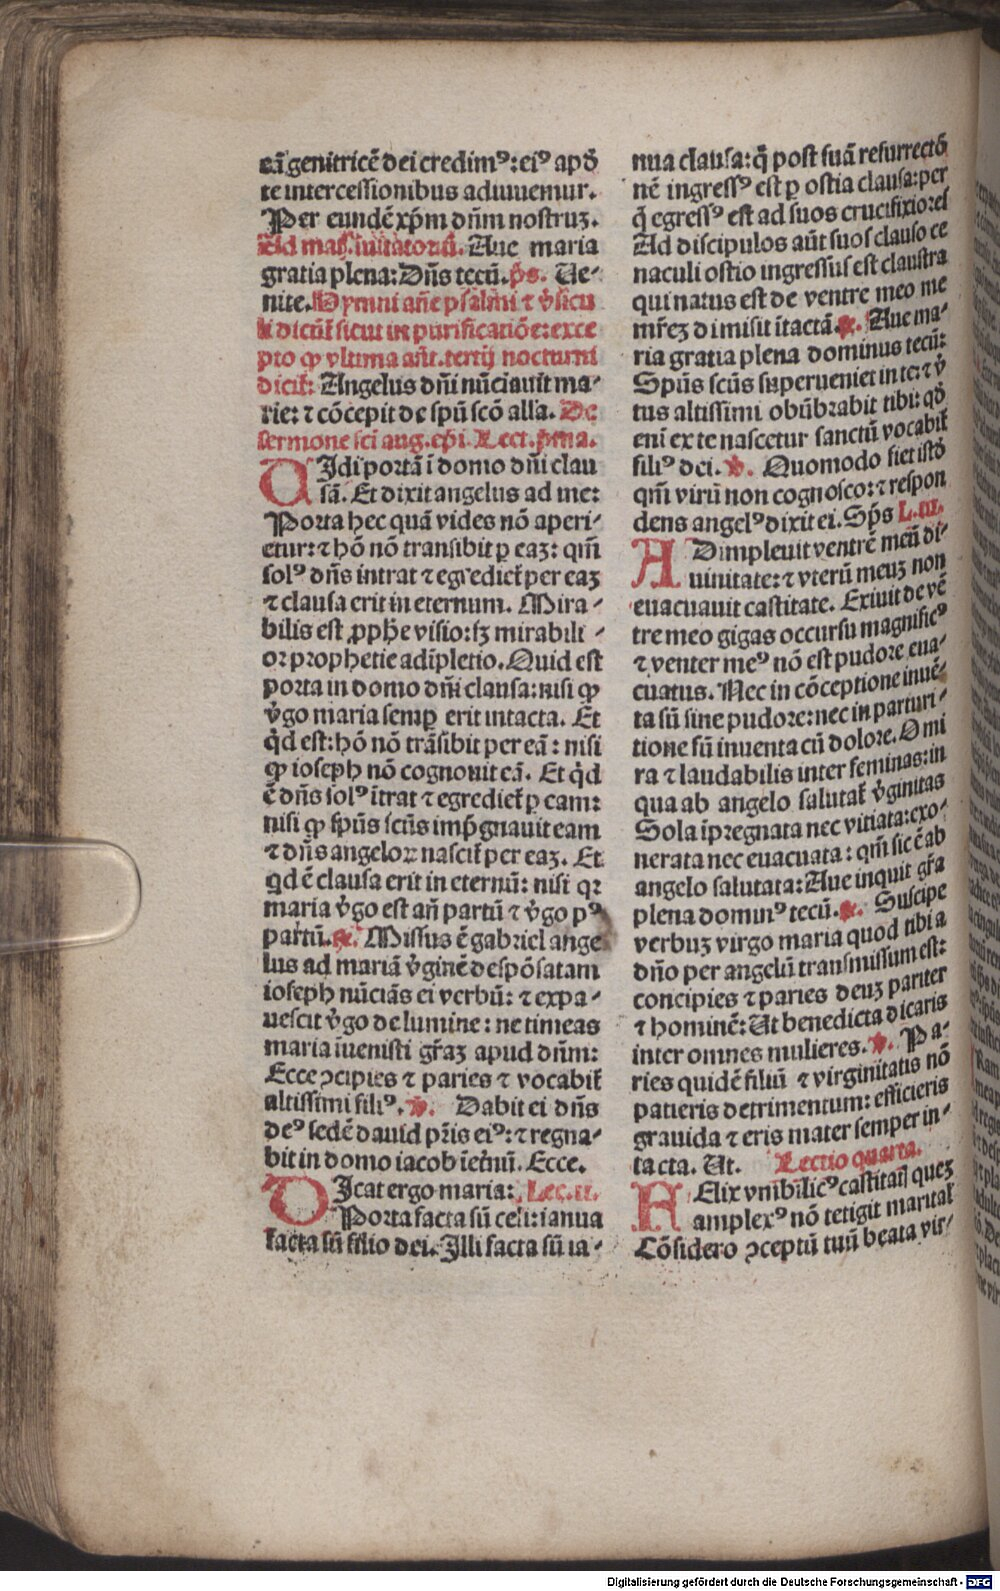 eã genitricẽ dei credimꝰ: eiꝰ apđ
te intercessionibus adiuuemur.
Per eundẽ xp̄m dñm nostruz.
Ad mat̃. iuitatoriũ. Aue maria
gratia plena: Dñs tecũ. p̄s. Ue-
nite. Hymni añe psalmi ⁊ v̓sicu
li dicũt̃ sicut in purificatiõe: exce
pto ꝙ vltima añt. tertij nocturni
dicit̃: Angelus dñi nũciauit ma-
rie: ⁊ cõcepit de spũ scõ alla. De
sermone sci aug. ep̄i. Lect. p̄ma.
UIdi portã ĩ domo dñi clau
sã. Et dixit angelus ad me:
Porta hec quã vides nõ aperi-
etur: ⁊ hõ nõ transibit ꝑ eaz: qm̃
solꝰ dñs intrat ⁊ egrediet̃ per eaz
⁊ clausa erit in eternum. Mira-
bilis est ꝓphẽ visio: sꝫ mirabili-
or prophetie adĩpletio. Quid est
porta in domo dñi clausa: nisi ꝙ
v̓go maria semꝑ erit intacta. Et
q̓d est: hõ nõ trãsibit per eã: nisi
ꝙ ioseph nõ cognouit eã. Et q̓d
ẽ dñs solꝰ ĩtrat ⁊ egrediet̃ ꝑ eam:
nisi ꝙ spũs scũs imp̃gnauit eam
⁊ dñs angeloꝝ nascit̃ per eaz. Et
qd ẽ clausa erit in eternũ: nisi qꝛ
maria v̓go est añ partũ ⁊ v̓go pꝰ
partũ. ℟. Missus ẽ gabriel ange
lus ad mariã v̓ginẽ despõsatam
ioseph nũciãs ei verbũ: ⁊ expa-
uescit v̓go de lumine: ne timeas
maria ĩuenisti gr̃az apud dñm:
Ecce ↄcipies ⁊ paries ⁊ vocabit̃
altissimi filiꝰ. ℣. Dabit ei dñs
deꝰ sedẽ dauid pr̃is eiꝰ: ⁊ regna-
bit in domo iacob ĩet̓nũ. Ecce.
DIcat ergo maria: Lec. ii.
Porta facta sũ celi: ianua
facta sũ filio dei. Illi facta sũ ia-
nua clausa: q̃ post suã resurrectõ
nẽ ingressꝰ est ꝑ ostia clausa: per
q̃ egressꝰ est ad suos crucifixiores
Ad discipulos aũt suos clauso ce
naculi ostio ingressus est claustra
qui natus est de ventre meo me
mr̃ez dimisit ĩtactã. ℟. Aue ma-
ria gratia plena dominus tecũ:
Spũs scũs superueniet in te: ⁊ v̓
tus altissimi obũbrabit tibi: qđ
eni ex te nascetur sanctũ vocabit̃
filiꝰ dei. ℣. Quomodo fiet istđ
qm̃ virũ non cognosco: ⁊ respon
dens angelꝰ dixit ei. Sp̃s L. iii.
ADimpleuit ventrẽ meũ di-
uinitate: ⁊ vterũ meuz non
euacuauit castitate. Exiuit de vẽ
tre meo gigas occursu magnificꝰ
⁊ venter meꝰ nõ est pudore eua-
cuatus. Nec in cõceptione inuẽ-
ta sũ sine pudore: nec in parturi-
tione sũ inuenta cũ dolore. O mi
ra ⁊ laudabilis inter feminas: in
qua ab angelo salutat̃ v̓ginitas
Sola ĩpregnata nec vitiata: exo-
nerata nec euacuata: qm̃ sic ẽ ab
angelo salutata: Aue inquit gr̃a
plena dominꝰ tecũ. ℟. Suscipe
verbuz virgo maria quod tibi a
dño per angelũ transmissum est:
concipies ⁊ paries deuz pariter
⁊ hominẽ: Ut benedicta dicaris
inter omnes mulieres. ℣. Pa-
ries quidẽ filiũ ⁊ virginitatis nõ
patieris detrimentum: efficieris
grauida ⁊ eris mater semper in-
tacta. Ut. Lectio quarta.
FElix vnibilicꝰ castitati quez
amplexꝰ nõ tetigit marital̃
Cõsidero ↄceptũ tuũ beata vir-
Digitalisierung gefördert durch die Deutsche Forschungsgemeinschaft - DFG